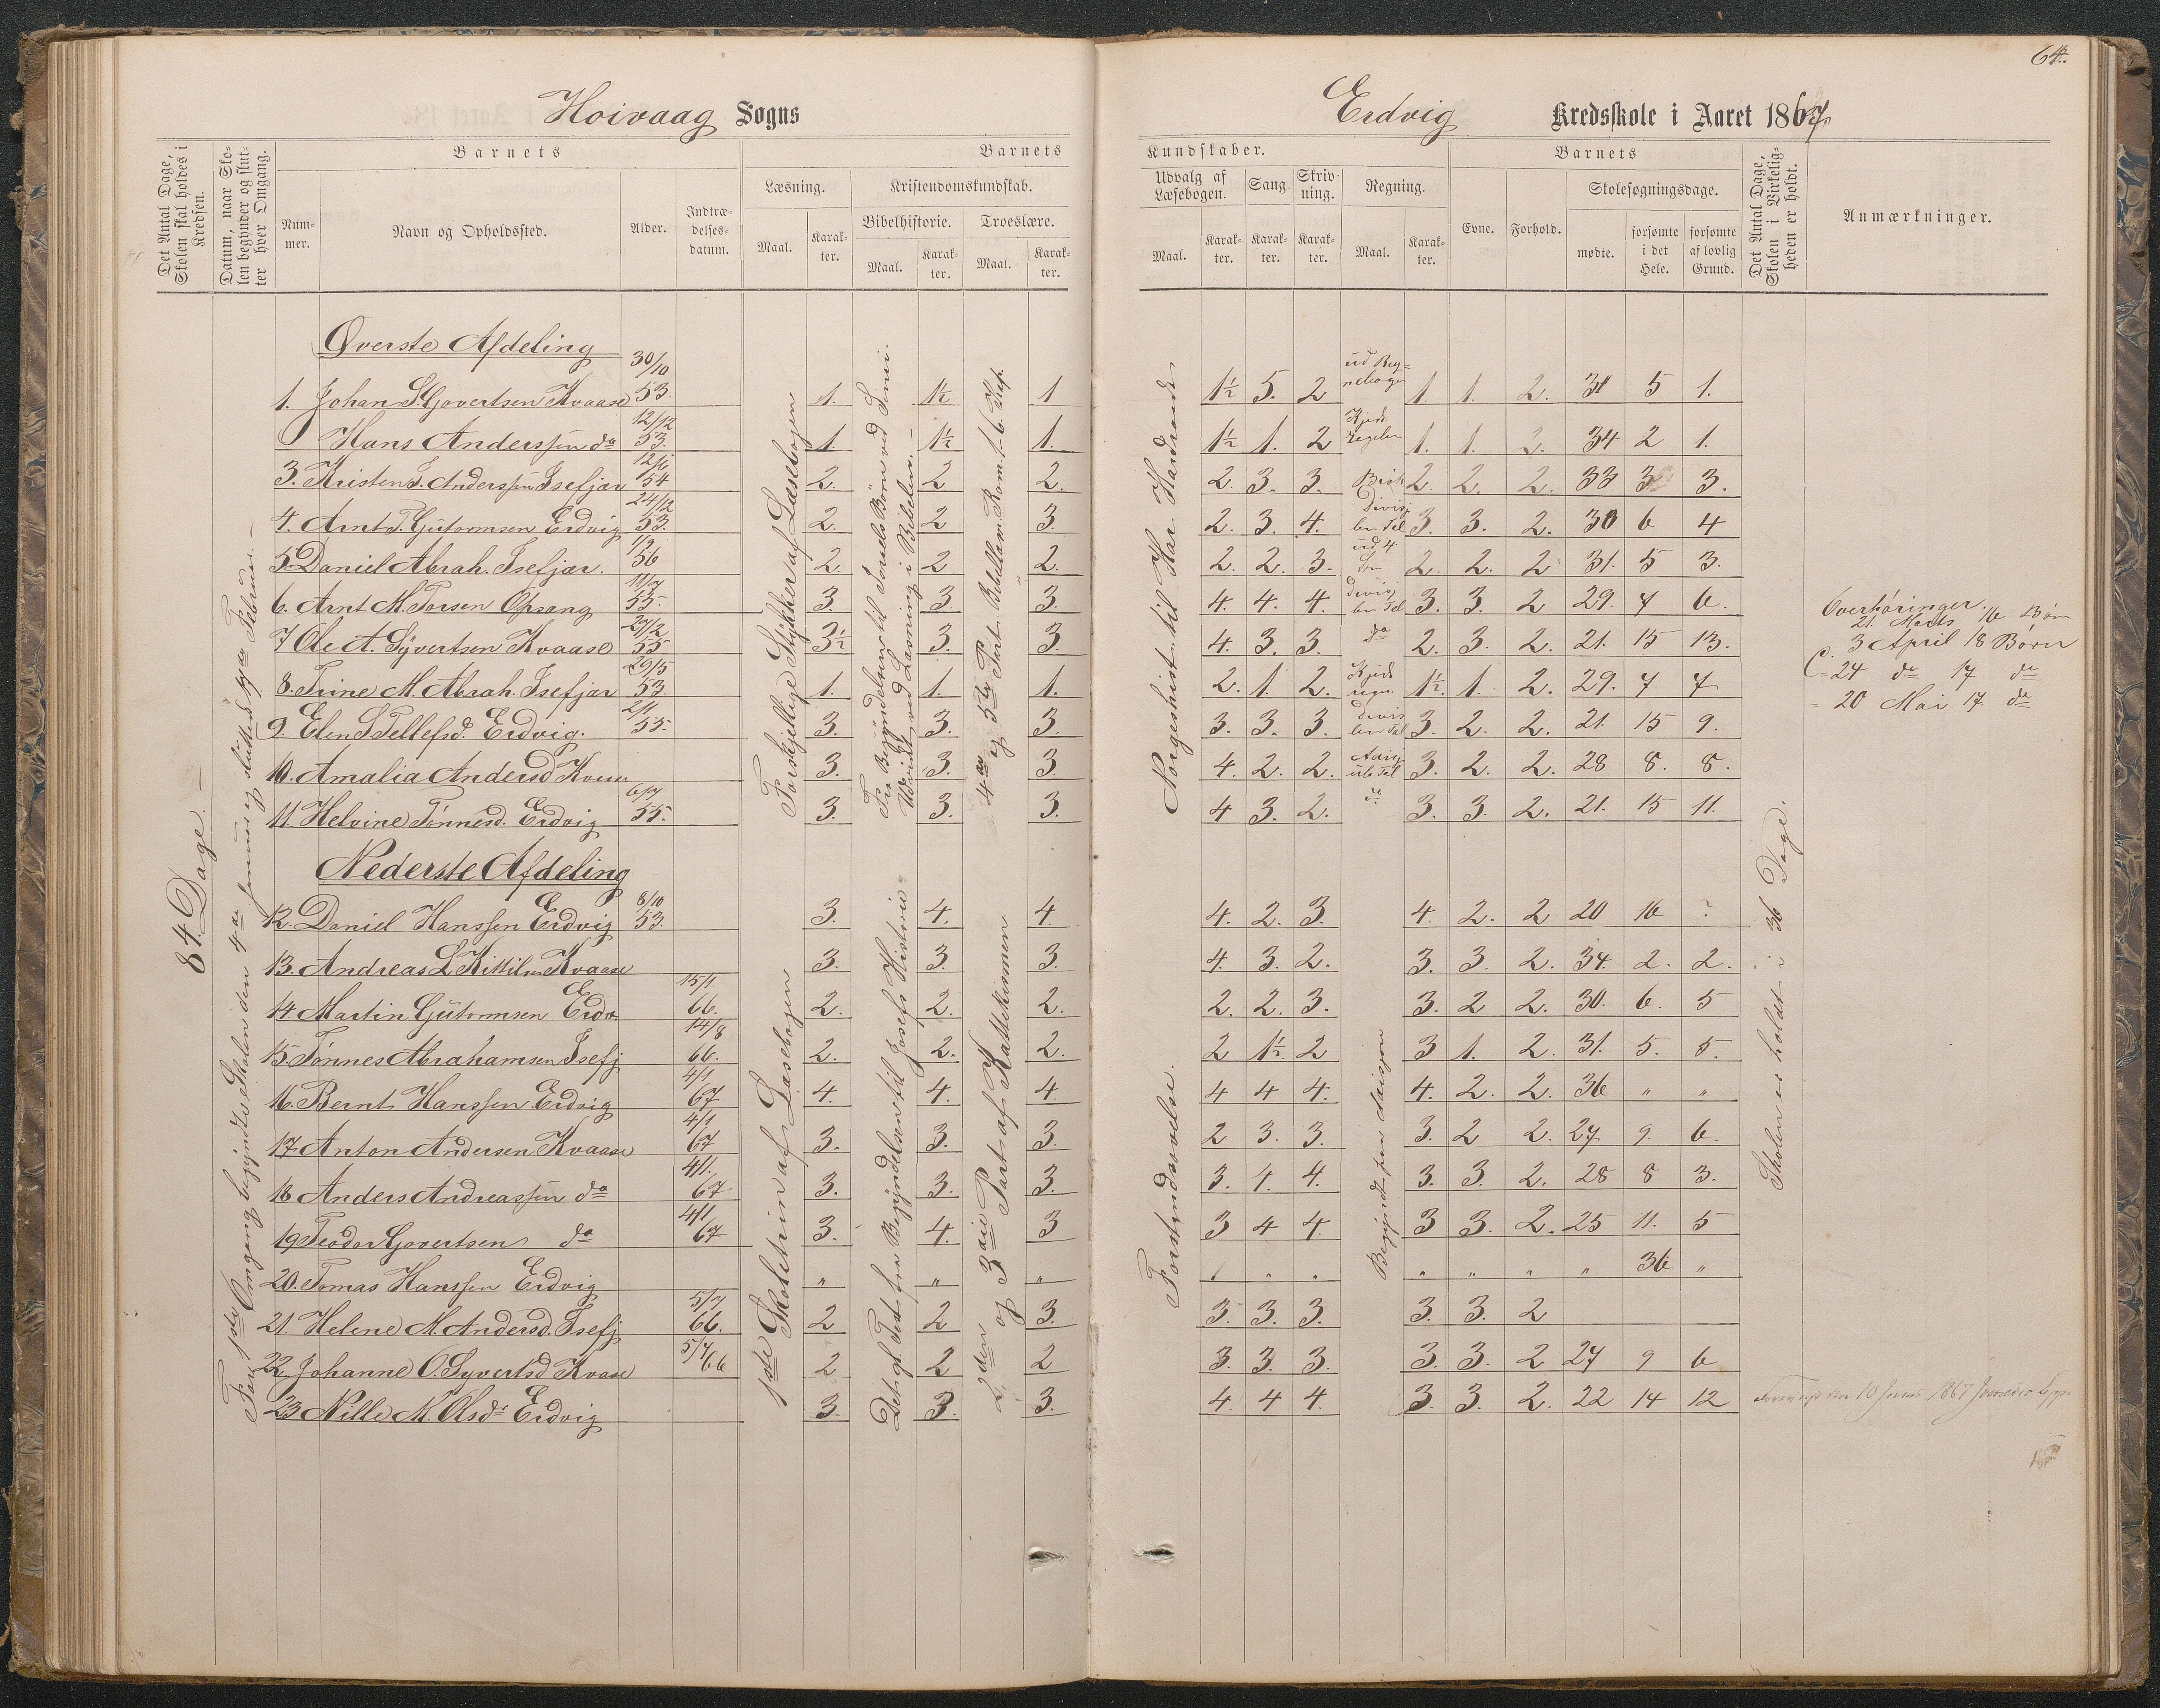 64.
Hoivaag Sogns
Erdvig Kredsskole i Aaret 1867.
Det Antal Dage, Skolen skal holdes i Kredsen.
Datum, naar Skolen begynder og slutter hver Omgang.
Barnets
Nummer.
Navn og Opholdssted.
Alder.
Indtrædelsesdatum.
Barnets
Læsning.
Maal.
Karakter.
Kristendomskundskab.
Bibelhistorie.
Maal.
Karakter.
Troeslære.
Maal.
Karakter.
Kundskaber.
Udvalg af Læsebogen.
Maal.
Karakter.
Sang.
Karakter.
Skrivning.
Karakter.
Regning.
Maal.
Karakter.
Barnets
Evne.
Forhold.
Skolesøgningsdage.
mødte.
forsømte i det Hele.
forsømte af lovlig Grund.
Det Antal Dage, Skolen i Virkeligheden er holdt.
Anmærkninger.
84. Dage.
Øverste Afdeling
1. Johan S. Govertsen Kvaase 30/10 53. 1. 1½ 1 1½ 5. 2 1. 1. 2. 31 5 1.
Hans Anderssen do 12/12 53. 1. 1½ 1. 1½ 1. 2 1. 1. 2. 34 2 1.
3. Kristen T. Anderssen Isefjær 12/6 54 2. 2 2. 2. 3. 3. Brøk 2. 2. 2. 33 3 3.
4. Arnt T. Gutormsen Erdvig 24/12 53. 2. 2 3. 2. 3. 4. 3. 3. 2. 30 6 4
5. Daniel Abrah. Isefjær. 1/9 56 2. 2 2. 2. 2. 3. 2. 2. 2 31. 5 3.
6. Arnt M. Torsen Opsang 11/7 55. 3. 3. 3. 4. 4. 4. 3. 3. 2 29. 7 6.
7 Ole A. Syvertsen Kvaase 27/2 55 3½ 3. 3. 4. 3. 3. do 2. 3. 2. 21. 15 13.
8. Trine M. Abrah. Isefjær 20/5 53. 1. 1. 1. 2. 1. 2. 1½. 1. 2. 29. 7 7
9. Elen S Tellefsd. Erdvig. 2/1 55. 3. 3. 3. 3. 3. 3. 3. 2. 2. 21. 15 9.
10. Amalia Andersd 3. 3. 3. 4. 2. 2. 3. 2. 2. 28 8. 8.
11 Helvine Tønnesd. Erdvig 6/7 55. 3. 3. 3. 4 3. 2. do 3. 3. 2. 21. 15 11.
Nederste Afdeling
12. Daniel Hanssen Erdvig 8/10 53. 3. 4. 4. 4. 2. 3. 4. 2. 2 20 16 ?
13. Andreas L Kittilsen Kvaase 3. 3. 3. 4. 3. 2. 3. 3. 2. 34. 2. 2.
14 Martin Gutormsen Erdv. 15/1. 66. 2. 2. 2. 2. 2. 3. 3. 2 2. 30. 6. 5
15. Tønnes Abrahamsen Isefj 14/8 66. 2. 2. 2. 2 1½ 2 3 1. 2. 31. 5. 5.
16. Bernt Hanssen Erdvig 4/1 67 4. 4. 4 4 4 4. 4. 2. 2. 36 " "
17 Anton Andersen Kvaase 4/1 67 3. 3. 3. 2 3. 3. 3. 2 2. 27 9. 6.
18 Anders Andreassen do 4/1. 67 3. 3. 3. 3. 4. 4. 3. 3. 2. 28 8 3.
19 Teodor Govertsen do 4/1 67 3. 4. 3 3 4 4. 3 3. 2. 25 11. 5
20. Tomas Hanssen Erdvig " " " " " " " " " " 36 "
21. Helene M. Andersd. Isefj 5/7 66. 2 2 3. 3. 3. 3. 3. 3. 2
22. Johanne O. Syvertsd Kvase 5/7 66 2 2 2 3. 3. 3. 3. 3. 2 27 9 6
23 Nille M. Olsdr Erdvig 3. 3. 3. 4. 4 4. 3. 3. 2. 22 14 12
For 1ste Omgang begyndte Skolen den 4de Januar og sluttede Februar.
Forskjellige Stykker af Læsebogen
Fra Begyndelsen til Israels Børn ved Sinai.
Udvidet ved Læsning i Bibelen.
4de og 5te Part.
1ste Skoletrin af Læsebogen
Begyndelsen til Josefs Historie
2den og 3die Part af Kattekismen
Norgeshist. til Har. Haardraade
Forstandsøvelse.
Skolen er holdt i 36 Dage.
Overhøringer.
21. Marts 16 Børn
3 April 18 Børn
24 do 17 do
20 Mai 17. do